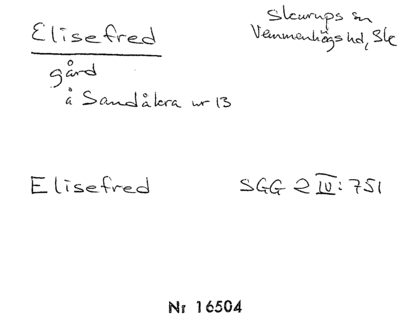 Elisefred
Skurups sn
Vemmenhögs hd, Sk
gård
å Sandåkra nr 13
Elisefred SGG 2 IV: 751
Nr 16504